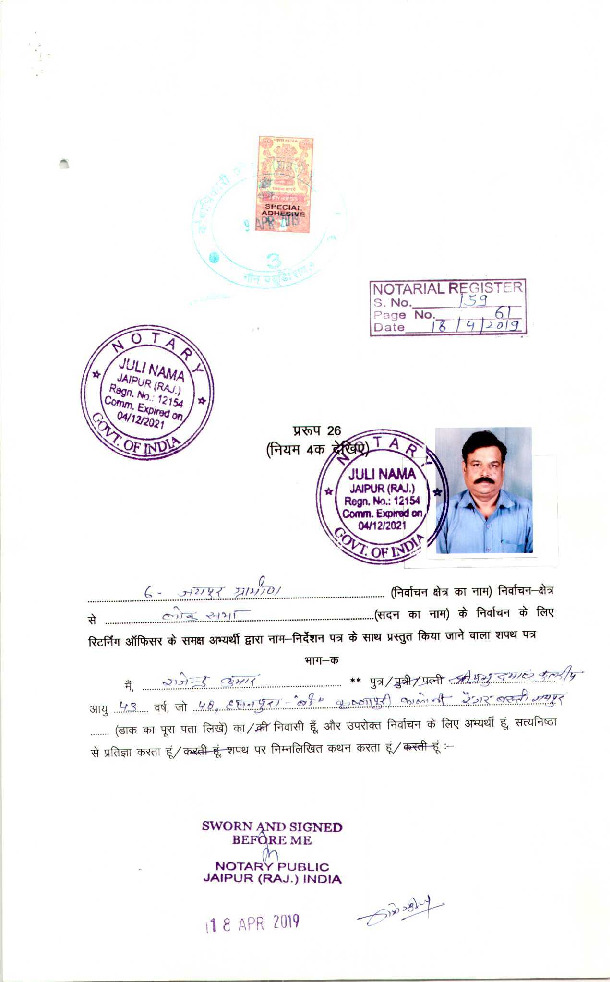 SPECIAL
ADHESIVE
APR 2019
3
NOTARIAL REGISTER
S. No. 159
Page No. 61
Date 18/4/2019
NOTARY
JULI NAMA
JAIPUR (RAJ.)
Regn. No.: 12154
Comm. Expired on
04/12/2021
GOVT. OF INDIA
प्ररूप 26
(नियम 4क देखिए)
NOTARY
JULI NAMA
JAIPUR (RAJ.)
Regn. No.: 12154
Comm. Expired on
04/12/2021
GOVT. OF INDIA
6- जयपुर ग्रामीण (निर्वाचन क्षेत्र का नाम) निर्वाचन–क्षेत्र
से लोक सभा (सदन का नाम) के निर्वाचन के लिए
रिटर्निंग ऑफिसर के समक्ष अभ्यर्थी द्वारा नाम–निर्देशन पत्र के साथ प्रस्तुत किया जाने वाला शपथ पत्र
भाग–क
मैं, कुमार ** पुत्र/पुत्री/पत्नी
आयु 43 वर्ष जो 48, कालोनी जयपुर
(डाक का पूरा पता लिखें) का/की निवासी हूँ, और उपरोक्त निर्वाचन के लिए अभ्यर्थी हूं, सत्यनिष्ठा
से प्रतिज्ञा करता हूं/करती हूं शपथ पर निम्नलिखित कथन करता हूं/करती हूं :–
SWORN AND SIGNED
BEFORE ME
NOTARY PUBLIC
JAIPUR (RAJ.) INDIA
18 APR 2019